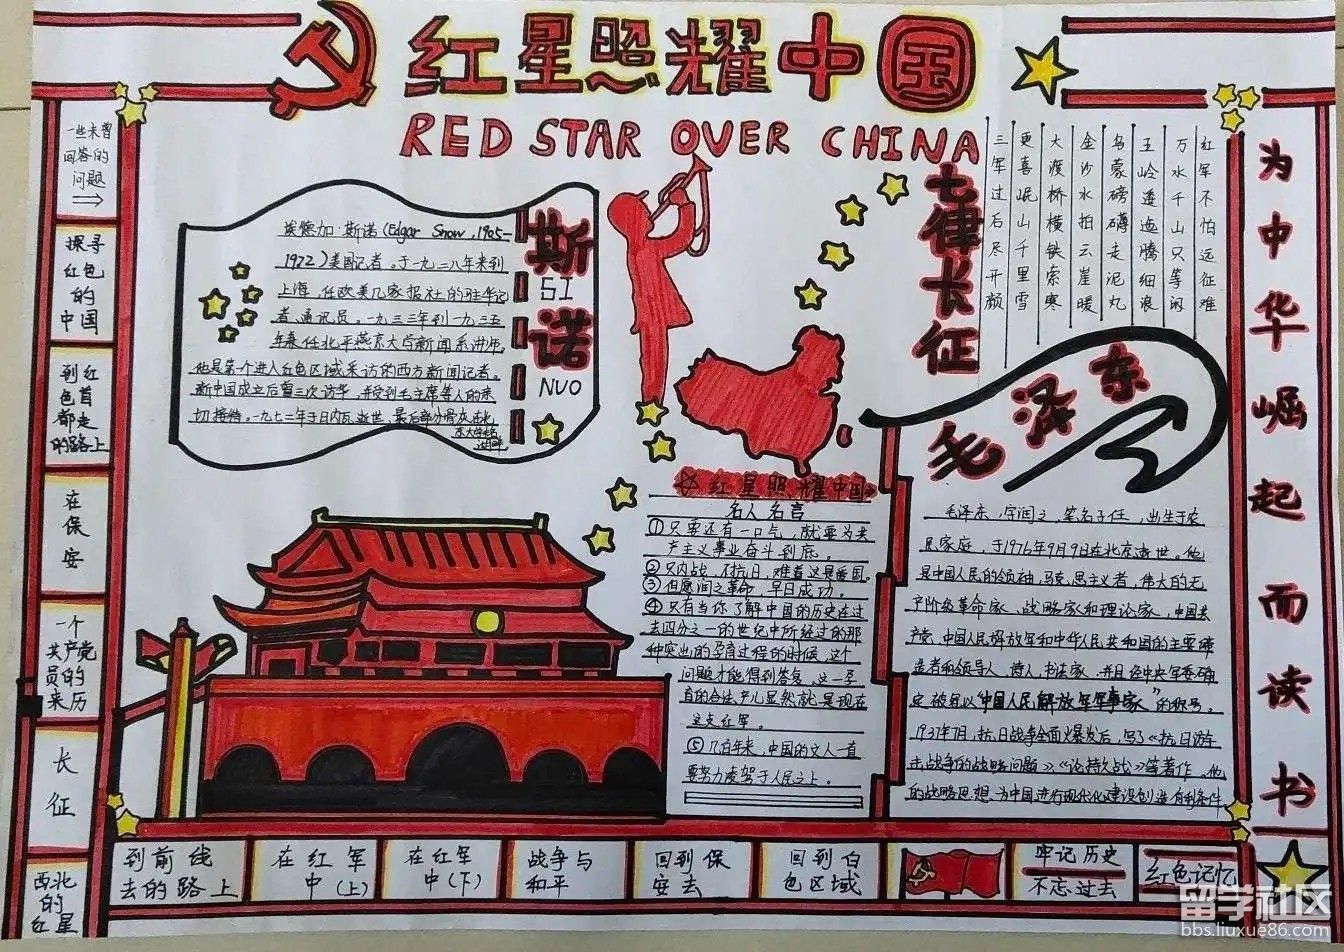 红星照耀中国
RED STAR OVER CHINA
一些未曾
回答的
问题
探寻
红色
的
中国
到红
色首
都走
的路上
在
保
安
一个
共产党
员的
来历
长
征
西北
的
红星
斯
SI
诺
NUO
埃德加·斯诺(Edgar Snow,1905-
1972)美国记者。于一九二八年来到
上海,任欧美几家报社的驻华记
者、通讯员。一九三三年到一九三五
年兼任北平燕京大学新闻系讲师。
他是第一个进入红色区域采访的西方新闻记者。
新中国成立后曾三次访华,并受到毛主席等人的亲
切接待。一九七二年于日内瓦逝世,最后部分骨灰在北
七律长征
红军不怕远征难
万水千山只等闲
五岭逶迤腾细浪
乌蒙磅礴走泥丸
金沙水拍云崖暖
大渡桥横铁索寒
更喜岷山千里雪
三军过后尽开颜
毛泽东
毛泽东,字润之,笔名子任,出生于农
民家庭,于1976年9月9日在北京逝世。他
是中国人民的领袖,马克思主义者,伟大的无
产阶级革命家、战略家和理论家,中国共
产党、中国人民解放军和中华人民共和国的主要缔
造者和领导人,诗人,书法家,并且经中央军委确
定被冠以“中国人民解放军军事家”的称号。
1937年7月,抗日战争全面爆发后,写了《抗日游
击战争的战略问题》、《论持久战》等著作。他
的战略思想为中国进行现代化建设创造有利条件
红星照耀中国
名人名言
①只要还有一口气,就要为共
产主义事业奋斗到底。
②只内战,不抗日,难着这是爱国。
③但愿润之革命,早日成功。
④只有当你了解中国的历史在过
去四分之一的世纪中所经过的那
种突出的孕育过程的时候,这个
问题才能得到答复,这一孕
育的合法产儿显然就是现在
这支红军。
⑤几百年来,中国的文人一直
要努力凌驾于人民之上。
为中华崛起而读书
到前线
去的路上
在红军
中(上)
在红军
中(下)
战争与
和平
回到保
安去
回到白
色区域
牢记历史
不忘过去
红色记忆
留学社区
bbs.liuxue86.com